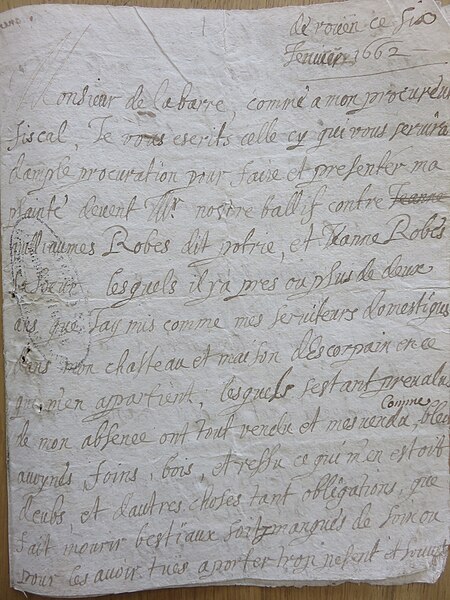 de rouën ce six
feuvier 1662
Monsieur de la barre, comme a mon procureur
fiscal, Je vous escrits celle cy qui vous servira
dample procuration pour faire et presenter ma
plainte devent Mr. nostre ballif contre Jeanne
Guilliaumes Robes dit potrie, et Jeanne Robes
sa soeur, lesquels il y a pres ou plus de deux
ans que Jay mis comme mes serviteurs domestiques
dans mon chasteau et maison dEscorpain et ce
qui m'en apartient, lesquels sestant prevalus
de mon absence ont tout vendu et mesvendu, Comme bled
avoynes foins, bois, et ressu ce qui m'en estoit
deubs et dautres choses tant obligations, que
fait mourir bestiaux soit mangués de foin ou
pour les avoir tués aporter trop pesent et souvent